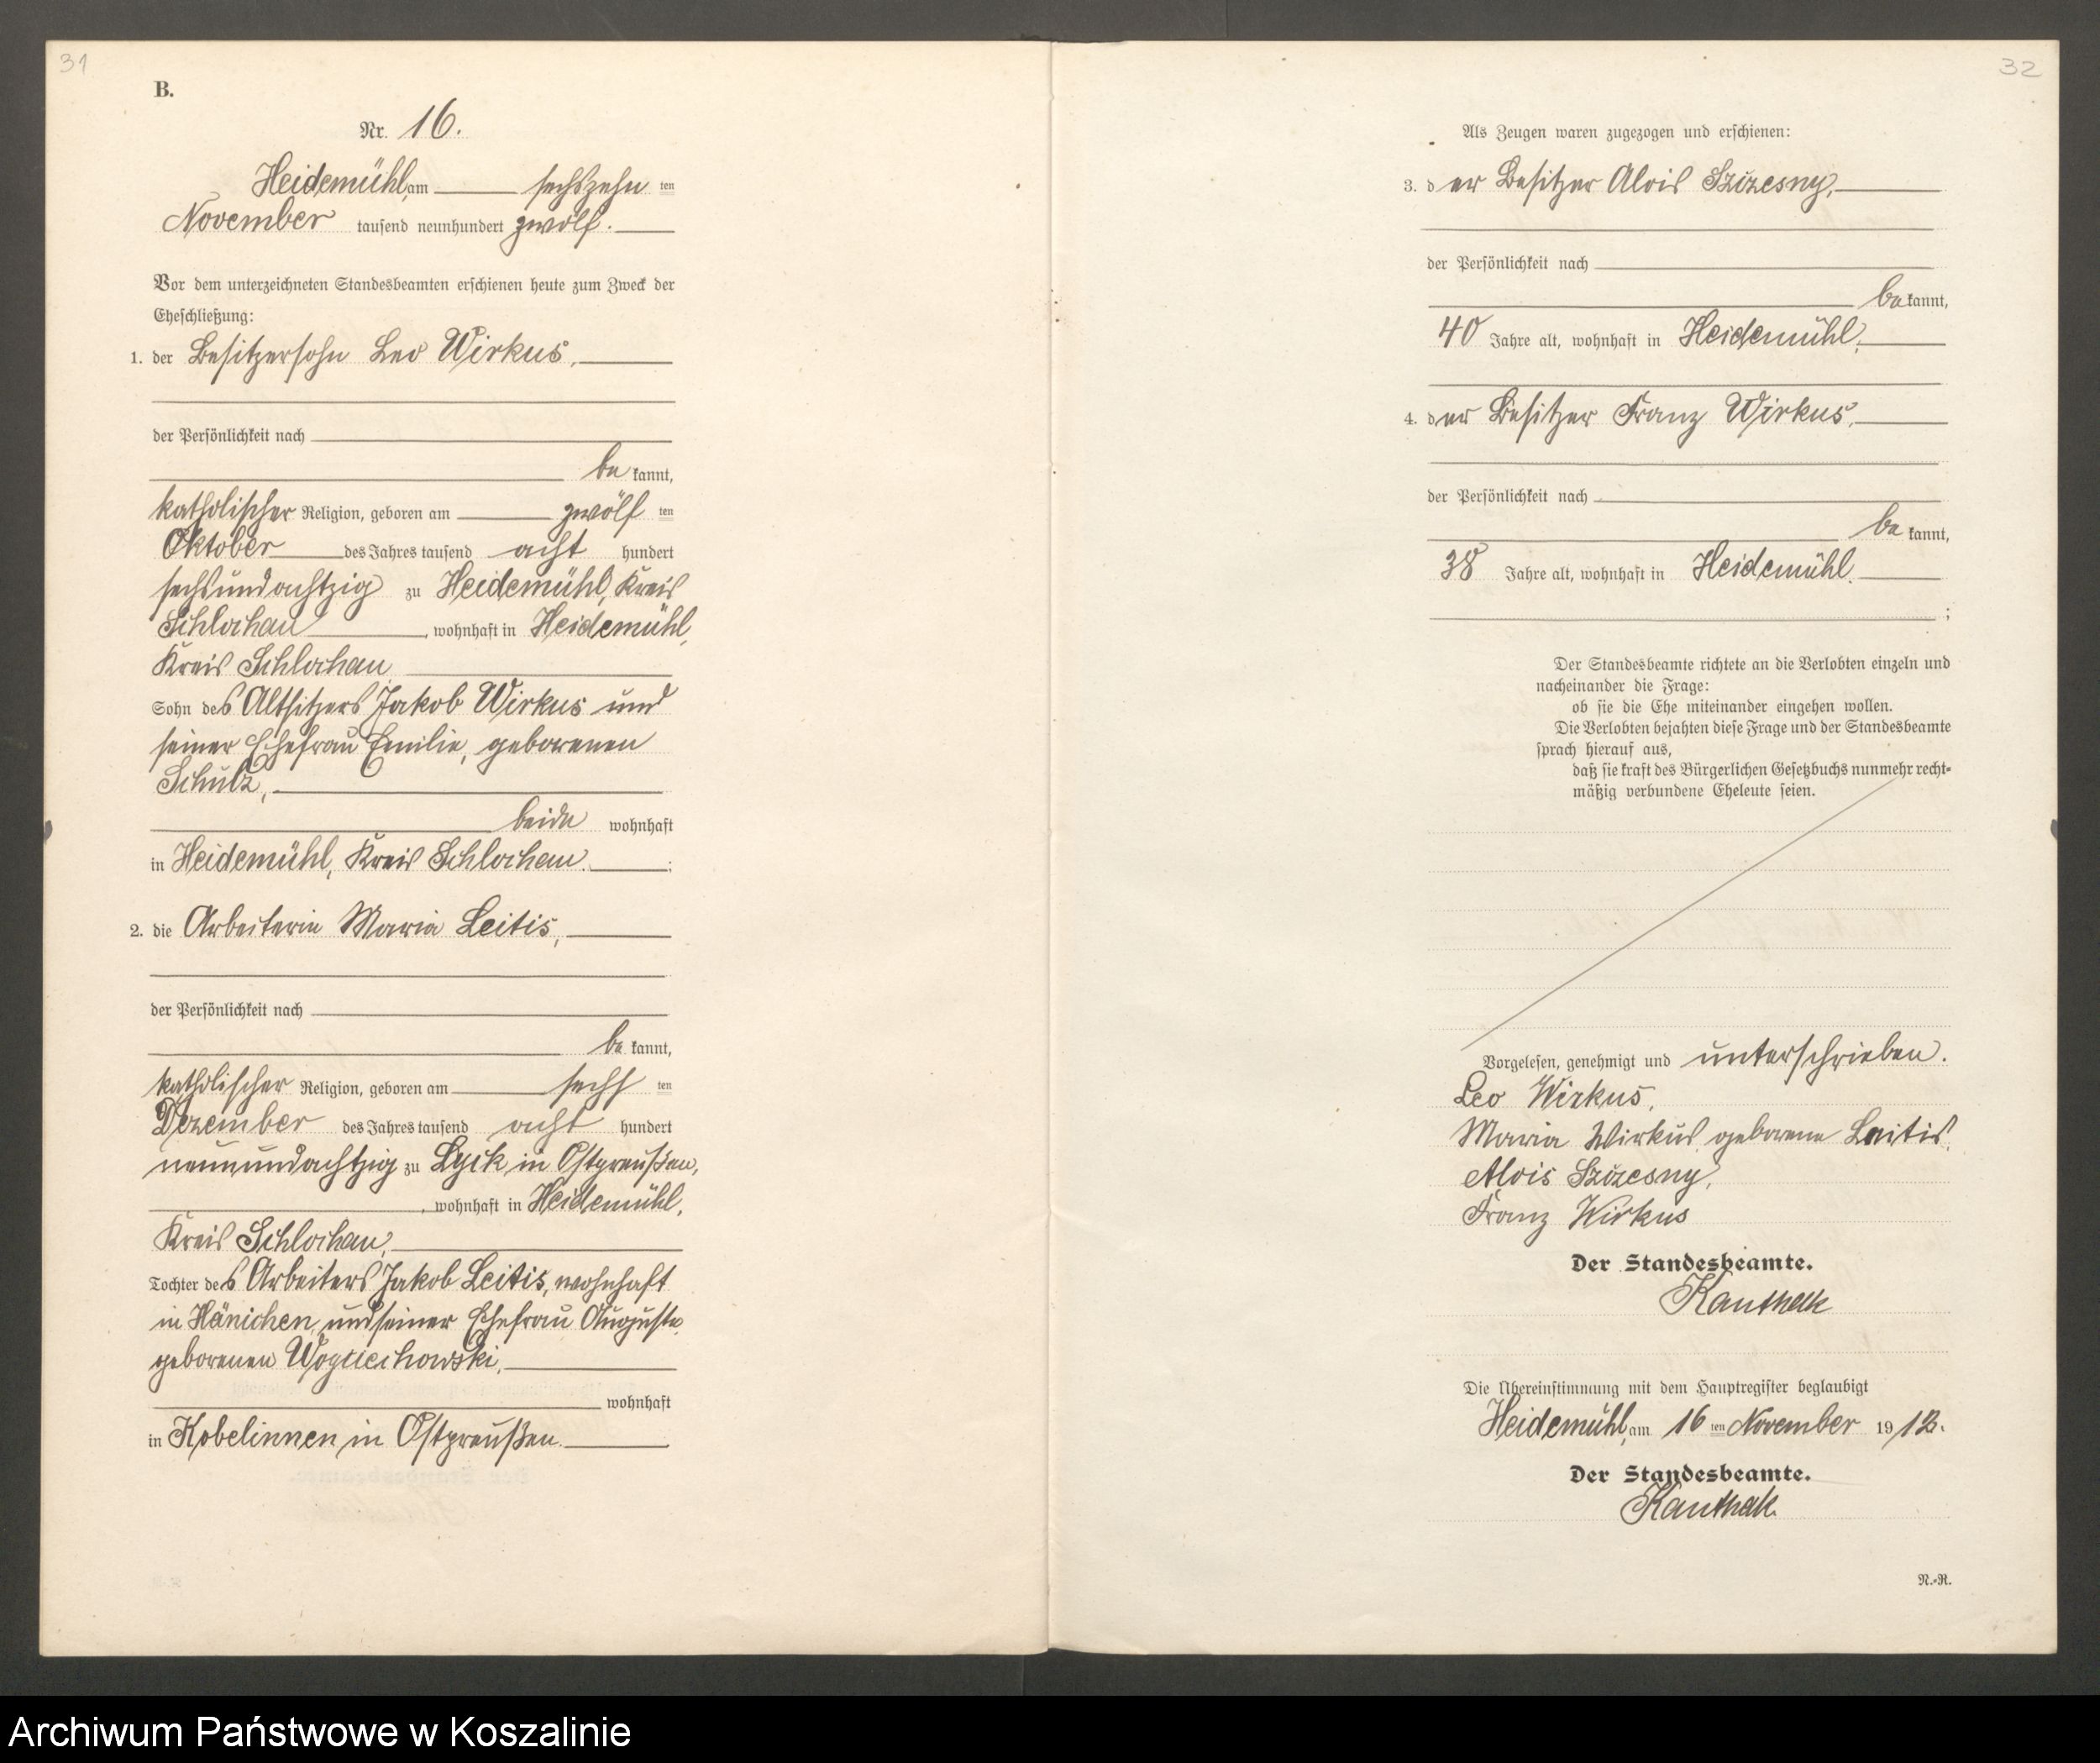 31
B.
Nr. 16.
Heidemühl, am sechszehn ten
November tausend neunhundert zwölf.
Vor dem unterzeichneten Standesbeamten erschienen heute zum Zweck der
Eheschließung:
1. der Besitzersohn Leo Wirkus,
der Persönlichkeit nach
be kannt,
katholischer Religion, geboren am zwölf ten
Oktober des Jahres tausend acht hundert
sechsundachtzig zu Heidemühl, Kreis
Schlochau, wohnhaft in Heidemühl,
Kreis Schlochau,
Sohn des Altsitzers Jakob Wirkus und
seiner Ehefrau Emilie, geborenen
Schulz,
beide wohnhaft
in Heidemühl, Kreis Schlochau.;
2. die Arbeiterin Maria Leitis,
der Persönlichkeit nach
be kannt,
katholischer Religion, geboren am sechs ten
Dezember des Jahres tausend acht hundert
neunundachtzig zu Lyck in Ostpreußen,
, wohnhaft in Heidemühl,
Kreis Schlochau,
Tochter des Arbeiters Jakob Leitis, wohnhaft
in Hänichen, und seiner Ehefrau Auguste,
geborenen Woyciechowski,
wohnhaft
in Kobelinnen in Ostpreußen.
32
Als Zeugen waren zugezogen und erschienen:
3. der Besitzer Alois Szczesny,
der Persönlichkeit nach
be kannt,
40 Jahre alt, wohnhaft in Heidemühl,
4. der Besitzer Franz Wirkus,
der Persönlichkeit nach
be kannt,
38 Jahre alt, wohnhaft in Heidemühl.
;
Der Standesbeamte richtete an die Verlobten einzeln und
nacheinander die Frage:
ob sie die Ehe miteinander eingehen wollen.
Die Verlobten bejahten diese Frage und der Standesbeamte
sprach hierauf aus,
daß sie kraft des Bürgerlichen Gesetzbuchs nunmehr recht-
mäßig verbundene Eheleute seien.
Vorgelesen, genehmigt und unterschrieben.
Leo Wirkus,
Maria Wirkus geborene Leitis.
Alois Szczesny,
Franz Wirkus
Der Standesbeamte.
Kanthak
Die Übereinstimmung mit dem Hauptregister beglaubigt
Heidemühl, am 16 ten November 19 12.
Der Standesbeamte.
Kanthak
N.-R.
Archiwum Państwowe w Koszalinie